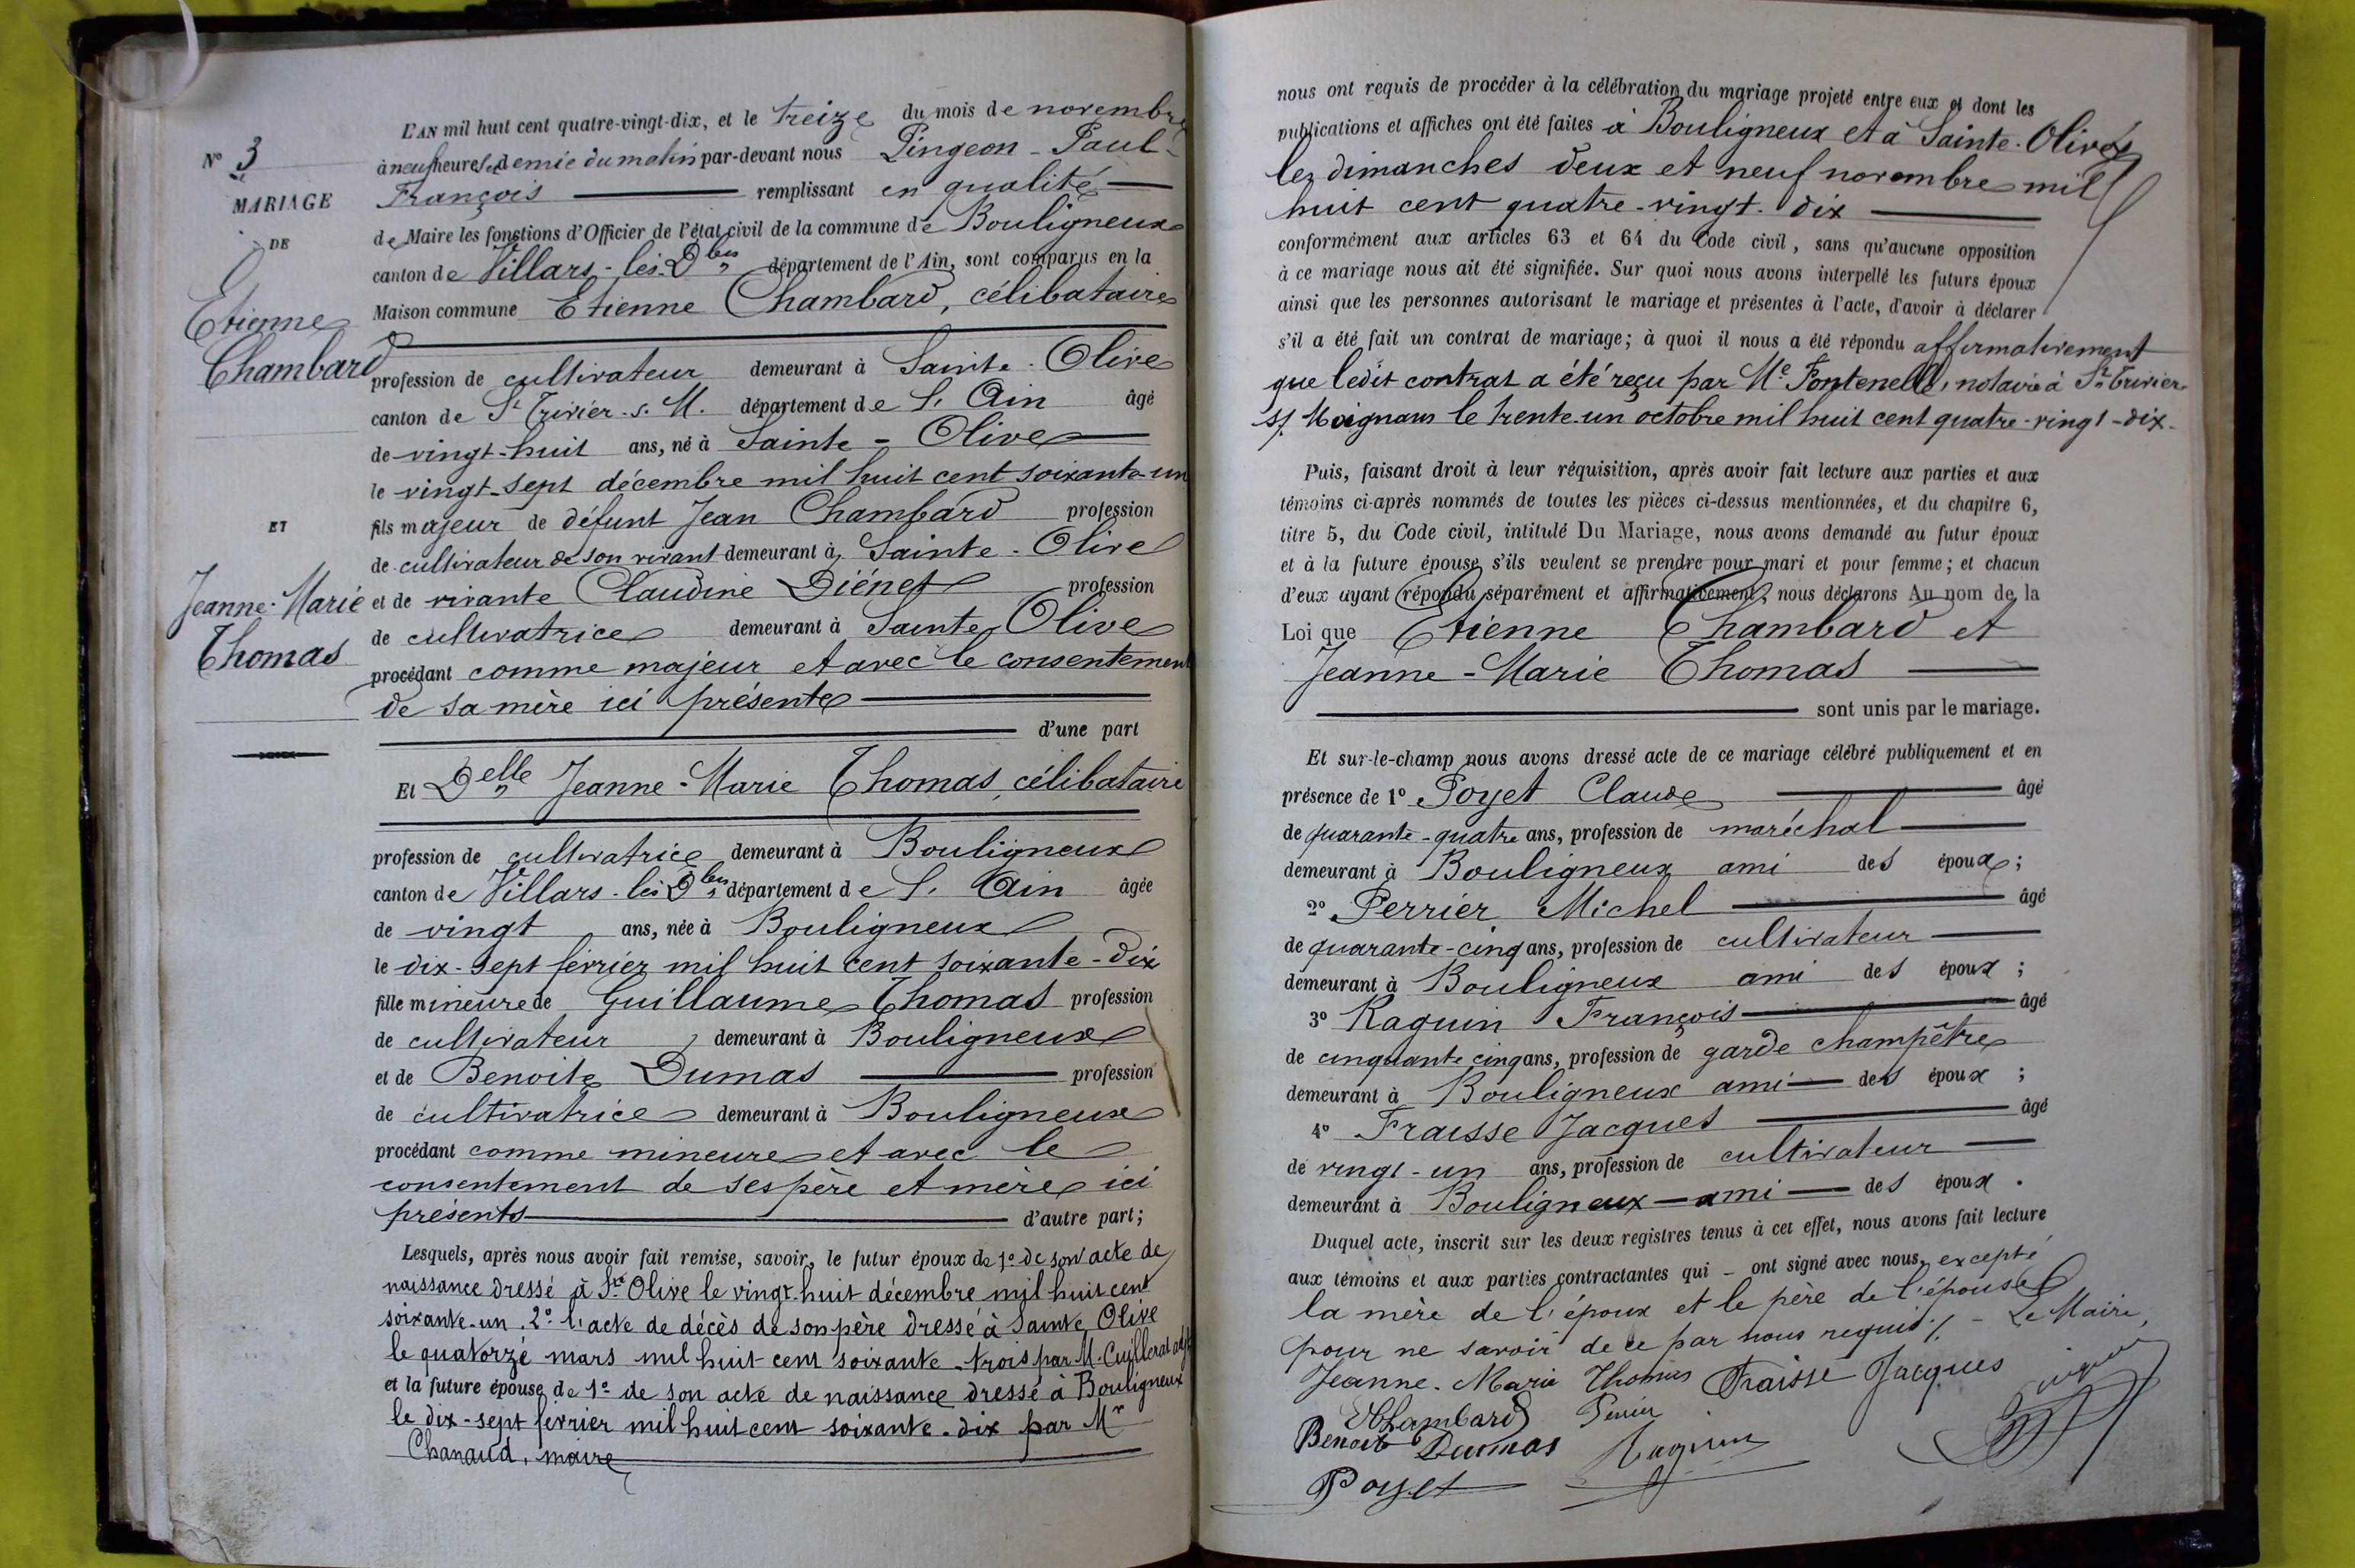 N° 3
MARIAGE
DE
Etienne
Chambard
ET
Jeanne-Marie
Thomas
L'AN mil huit cent quatre-vingt-dix, et le treize du mois de novembre
à neuf heures et demie du matin par-devant nous Pingeon-Paul-
François remplissant en qualité
de Maire les fonctions d'Officier de l'état civil de la commune de Bouligneux
canton de Villars-les-Dbes département de l'Ain, sont comparus en la
Maison commune Etienne Chambard, célibataire
profession de cultivateur demeurant à Sainte-Olive
canton de St Trivier-s.-M. département de l'Ain âgé
de vingt-huit ans, né à Sainte-Olive
le vingt-sept décembre mil huit cent soixante-un
fils majeur de défunt Jean Chambard profession
de cultivateur de son vivant demeurant à Sainte-Olive
et de vivante Claudine Diénet profession
de cultivatrice demeurant à Sainte-Olive
procédant comme majeur et avec le consentement
de sa mère ici présente
d'une part
Et Delle Jeanne-Marie Thomas, célibataire
profession de cultivatrice demeurant à Bouligneux
canton de Villars-les-Dbes département de l'Ain âgée
de vingt ans, née à Bouligneux
le dix-sept février mil huit cent soixante-dix
fille mineure de Guillaume Thomas profession
de cultivateur, demeurant à Bouligneux
et de Benoite Dumas profession
de cultivatrice demeurant à Bouligneux
procédant comme mineure et avec le
consentement de ses père et mère ici
présents d'autre part;
Lesquels, après nous avoir fait remise, savoir, le futur époux de 1° de son acte de
naissance dressé à Ste Olive le vingt-huit décembre mil huit cent
soixante-un. 2° l'acte de décès de son père dressé à Sainte Olive
le quatorze mars mil huit cent soixante-trois par M. Cuillerat adjt
et la future épouse de 1° de son acte de naissance dressé à Bouligneux
le dix-sept février mil huit cent soixante-dix par Mr
Chanaud, maire
nous ont requis de procéder à la célébration du mariage projeté entre eux et dont les
publications et affiches ont été faites à Bouligneux et à Sainte-Olive
les dimanches deux et neuf novembre mil
huit cent quatre-vingt-dix
conformément aux articles 63 et 64 du Code civil, sans qu'aucune opposition
à ce mariage nous ait été signifiée. Sur quoi nous avons interpellé les futurs époux
ainsi que les personnes autorisant le mariage et présentes à l'acte, d'avoir à déclarer
s'il a été fait un contrat de mariage; à quoi il nous a été répondu affirmativement
que ledit contrat a été reçu par Me Fontenelle, notaire à St-Trivier-
s/. Moignans le trente-un octobre mil huit cent quatre-vingt-dix.
Puis, faisant droit à leur réquisition, après avoir fait lecture aux parties et aux
témoins ci-après nommés de toutes les pièces ci-dessus mentionnées, et du chapitre 6,
titre 5, du Code civil, intitulé Du Mariage, nous avons demandé au futur époux
et à la future épouse s'ils veulent se prendre pour mari et pour femme; et chacun
d'eux ayant répondu séparément et affirmativement, nous déclarons Au nom de la
Loi que Etienne Chambard et
Jeanne-Marie Thomas
sont unis par le mariage.
Et sur-le-champ nous avons dressé acte de ce mariage célébré publiquement et en
présence de 1° Poyet Claude âgé
de quarante-quatre ans, profession de maréchal
demeurant à Bouligneux ami des époux;
2° Perrier Michel âgé
de quarante-cinq ans, profession de cultivateur
demeurant à Bouligneux ami des époux;
3° Raguin François âgé
de cinquante cinq ans, profession de garde champêtre
demeurant à Bouligneux ami des époux;
4° Fraisse Jacques âgé
de vingt-un ans, profession de cultivateur
demeurant à Bouligneux ami des époux.
Duquel acte, inscrit sur les deux registres tenus à cet effet, nous avons fait lecture
aux témoins et aux parties contractantes qui - ont signé avec nous, excepté
la mère de l'époux et le père de l'épouse
pour ne savoir de ce par nous requis ./. - Le Maire,
Jeanne-Marie Thomas Fraisse Jacques
EChambard Perrier Pingeon
Benoite Dumas Raguin
Poyet